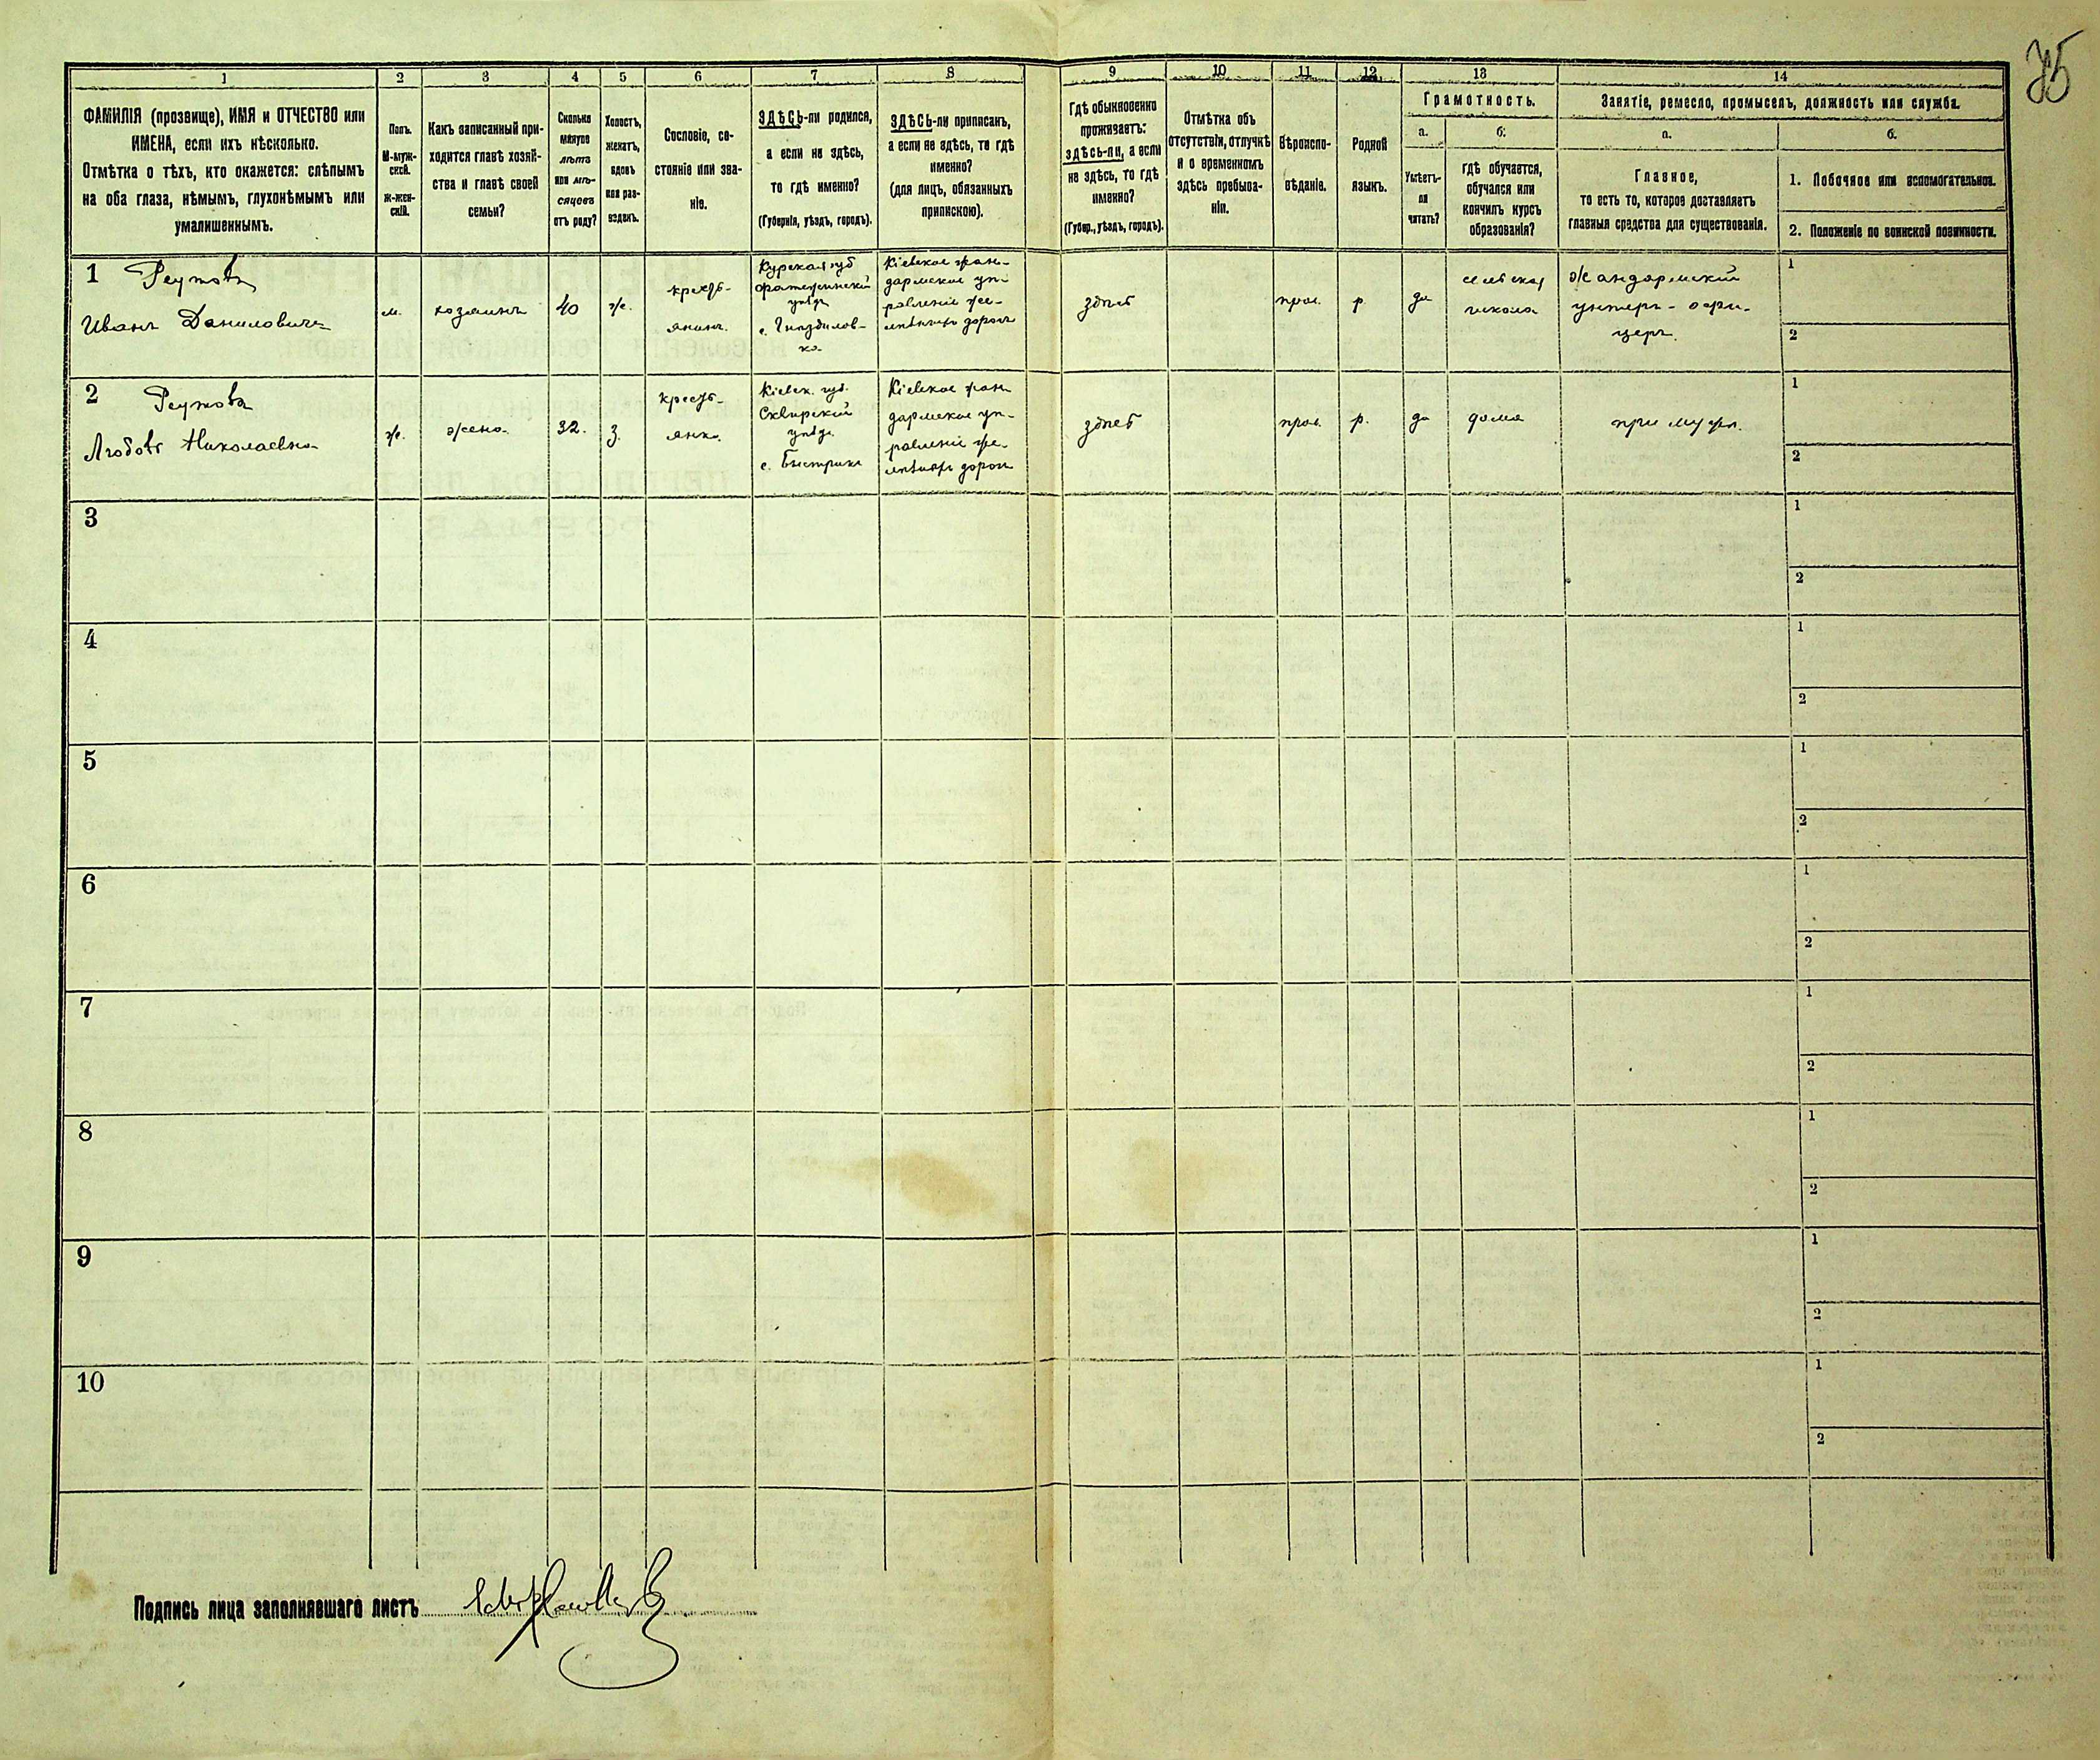 75
1 2 3 4 5 6 7 8 9 10 11 12 13 14
ФАМИЛІЯ (прозвище), ИМЯ и ОТЧЕСТВО или
ИМЕНА, если ихъ нѣсколько.
Отмѣтка о тѣхъ, кто окажется: слѣпымъ
на оба глаза, нѣмымъ, глухонѣмымъ или
умалишеннымъ.
Полъ.
М-муж-
ской.
ж-жен-
скій.
Какъ записанный при-
ходится главѣ хозяй-
ства и главѣ своей
семьи?
Сколько
минуло
лѣтъ
или мѣ-
сяцевъ
отъ роду?
Холостъ,
женатъ,
вдовъ
или раз-
веденъ.
Сословіе, со-
стояніе или зва-
ніе.
ЗДѢСЬ-ли родился,
а если не здѣсь,
то гдѣ именно?
(Губернія, уѣздъ, городъ).
ЗДѢСЬ-ли приписанъ,
а если не здѣсь, то гдѣ
именно?
(для лицъ, обязанныхъ
припискою).
Гдѣ обыкновенно
проживаетъ:
здѣсь-ли, а если
не здѣсь, то гдѣ
именно?
(Губер., уѣздъ, городъ).
Отмѣтка объ
отсутствіи, отлучкѣ
и о временномъ
здѣсь пребыва-
ніи.
Вѣроиспо-
вѣданіе.
Родной
языкъ.
Грамотность.
а.
Умѣетъ-
ли
читать?
б.
гдѣ обучается,
обучался или
кончилъ курсъ
образованія?
Занятіе, ремесло, промыселъ, должность или служба.
а.
Главное,
то есть то, которое доставляетъ
главныя средства для существованія.
б.
1. Побочное или вспомогательное.
2. Положеніе по воинской повинности.
1
Иванъ Даниловичъ
м.
хозяинъ
40
ж.
кресть-
янинъ.
Курская губ
уѣздъ
Кіевское жан-
дармское уп-
равленіе же-
лѣзныхъ дорогъ
здѣсь
прав.
р.
да
сельская
школа
жандармскій
унтеръ-офи-
церъ.
1
2
2
Любовь Николаевна
ж.
жена.
32.
З.
кресть-
янка.
Кіевск. губ.
Сквирскій
уѣзд.
с. Быстрикъ
Кіевское жан-
дармское уп-
равленіе же-
лѣзныхъ дорогъ
здѣсь
прав.
р.
да
дома
при мужѣ.
1
2
3
1
2
4
1
2
5
1
2
6
1
2
7
1
2
8
1
2
9
1
2
10
1
2
Подпись лица заполнявшаго листъ